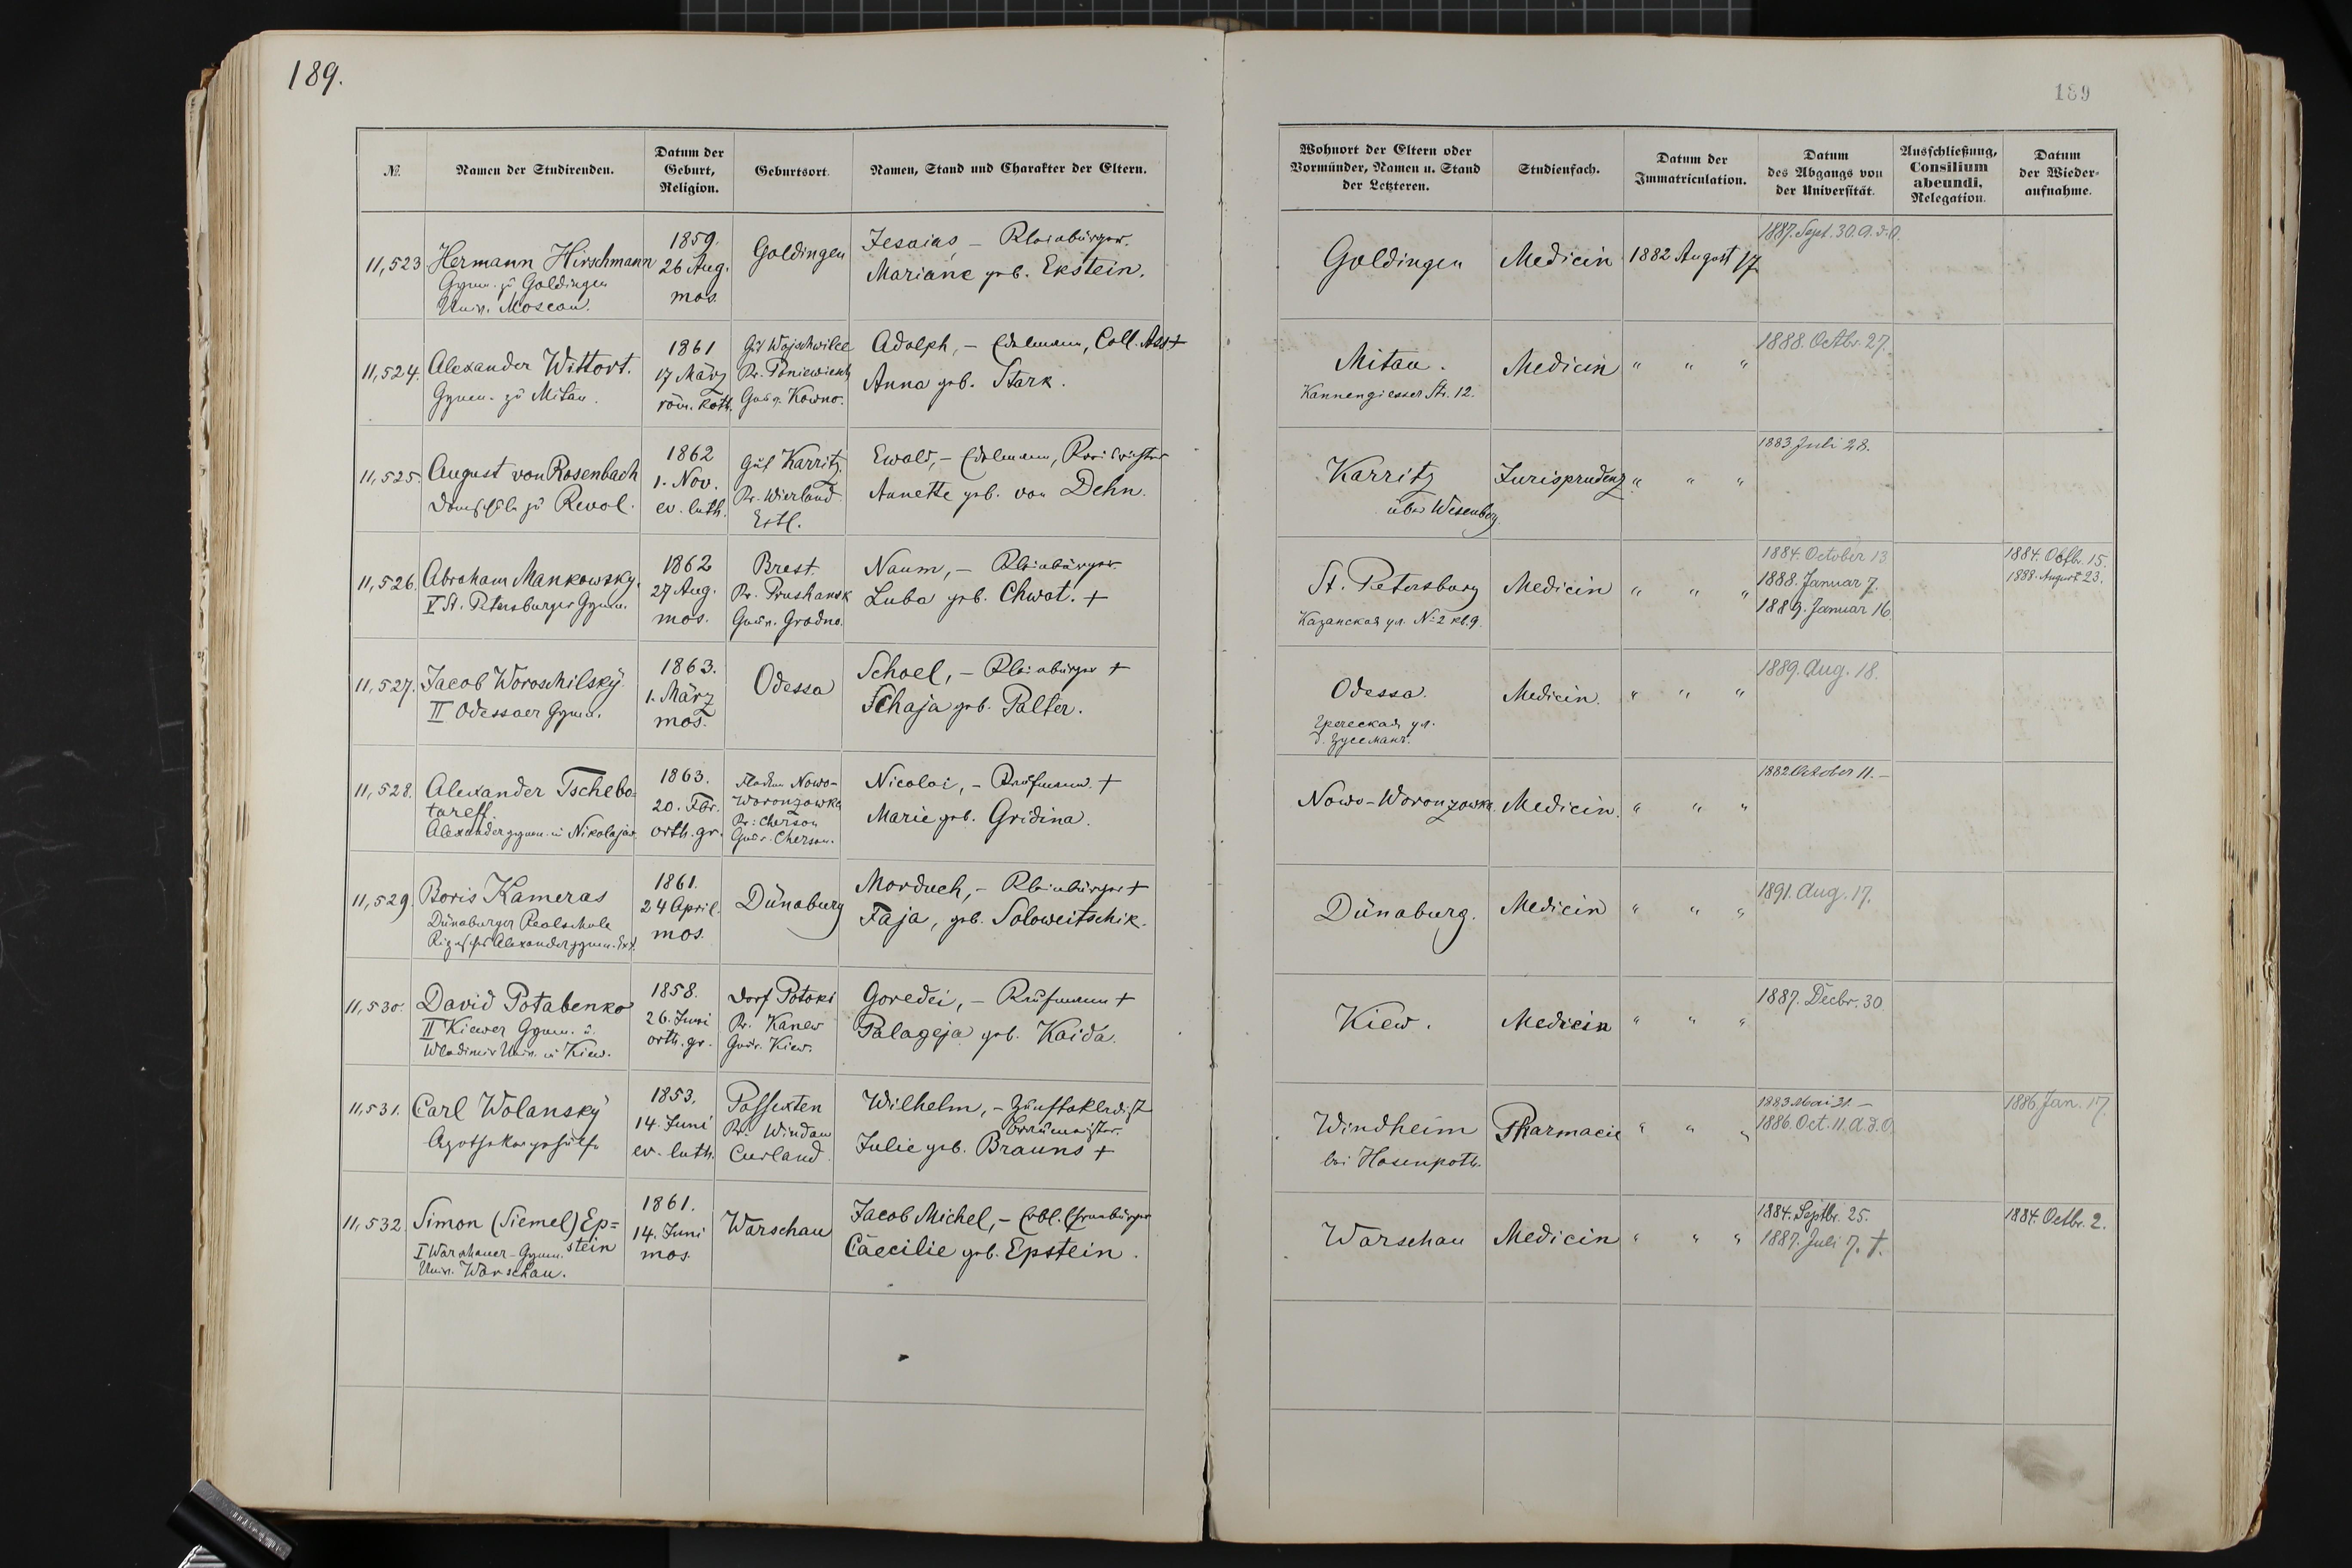 189.
189
№
Namen der Studirenden.
Datum der
Geburt,
Religion.
Geburtsort.
Namen, Stand und Charakter der Eltern.
Wohnort der Eltern oder
Vormünder, Namen u. Stand
der Letzteren.
Studienfach.
Datum der
Immatriculation.
Datum
des Abgangs von
der Universität.
Ausschließung,
Consilium
abeundi,
Relegation.
Datum
der Wieder-
aufnahme.
11,523
Hermann Hirschmann
Gymn. zu Goldingen
Univ. Moscau.
1859.
26 Aug.
mos.
Goldingen
Jesaias – Kleinbürger.
Mariane geb. Ekstein.
Goldingen
Medicin
1882 August 17
1887. Sept. 30. a. d. A.
11,524.
Alexander Wittort.
Gymn. zu Mitau.
1861
17 März
röm. kath.
Gut Wojschwilce
Kr. Poniewiesch
Gouv. Kowno.
Adolph, – Edelmann, Coll. Ass +
Anna geb. Stark.
Mitau.
Kannengiesser Str. 12.
Medicin
" " "
1888. Octbr. 27.
11,525.
August von Rosenbach
Domschule zu Reval.
1862
1. Nov.
ev. luth.
Gut Karritz
Kr. Wierland
Estl.
Ewald, – Edelmann,
Annette geb. von Dehn.
Karritz
über Wesenberg.
Jurisprudenz
" " "
1883 Juli 28.
11,526.
Abraham Mankowsky.
V St. Petersburger Gymn.
1862
27 Aug.
mos.
Brest.
Kr. Prushansk
Gouv. Grodno.
Naum, – Kleinbürger
Luba geb. Chwat. +
St. Petersburg
Казанская ул. № 2 кв. 9.
Medicin
" " "
1884. October 13
1888. Januar 7.
1889. Januar 16.
1884. Octbr. 15.
1888. August 23.
11,527.
Jacob Woroschilsky
II Odessaer Gymn.
1863.
1. März
mos.
Odessa
Schoel, – Kleinbürger +
Schaja geb. Palter.
Odessa.
Греческая ул.
д. Зусмана.
Medicin.
" " "
1889. Aug. 18.
11,528.
Alexander Tschebo-
tareff.
Alexandergymn. in Nikolajew
1863.
20. Fbr.
orth. gr.
Flecken Nowo-
Woronzowka
Kr. Cherson
Gouv. Cherson.
Nicolai, – Kaufmann. +
Marie geb. Gridina.
Nowo-Woronzowka.
Medicin.
" " "
1882 October 11. –
11,529.
Boris Kameras
Dünaburger Realschule
Rigasches Alexandergymn. Ext.
1861.
24 April.
mos.
Dünaburg
Morduch, – Kleinbürger +
Faja, geb. Soloweitschik.
Dünaburg.
Medicin
" " "
1891. Aug. 17.
11,530.
David Potabenko
II Kiewer Gymn. u.
Wladimir Univ. in Kiew.
1858.
26. Juni
orth. gr.
Dorf Potoki
Kr. Kanew
Gouv. Kiew.
Goredei, – Kaufmann +
Palageja geb. Kaida.
Kiew.
Medicin
" " "
1887. Decbr. 30
11,531.
Carl Wolansky
Apothekergehülfe
1853.
14. Juni
ev. luth.
Passexten
Kr. Windau
Curland.
Wilhelm, – Zunftokladist
Braumeister.
Julie geb. Brauns +
Windheim
bei Hasenpoth.
Pharmacie
" " "
1883. Mai 31. –
1886. Oct. 11. a. d. A.
1886 Jan. 17.
11,532
Simon (Siemel) Ep=
stein
I Warschauer-Gymn.
Univ. Warschau.
1861.
14. Juni
mos.
Warschau
Jacob Michel, – Erbl. Ehrenbürger
Cäecilie geb. Epstein.
Warschau
Medicin
" " "
1884. Septbr. 25.
1887. Juli 7. †.
1884. Octbr. 2.